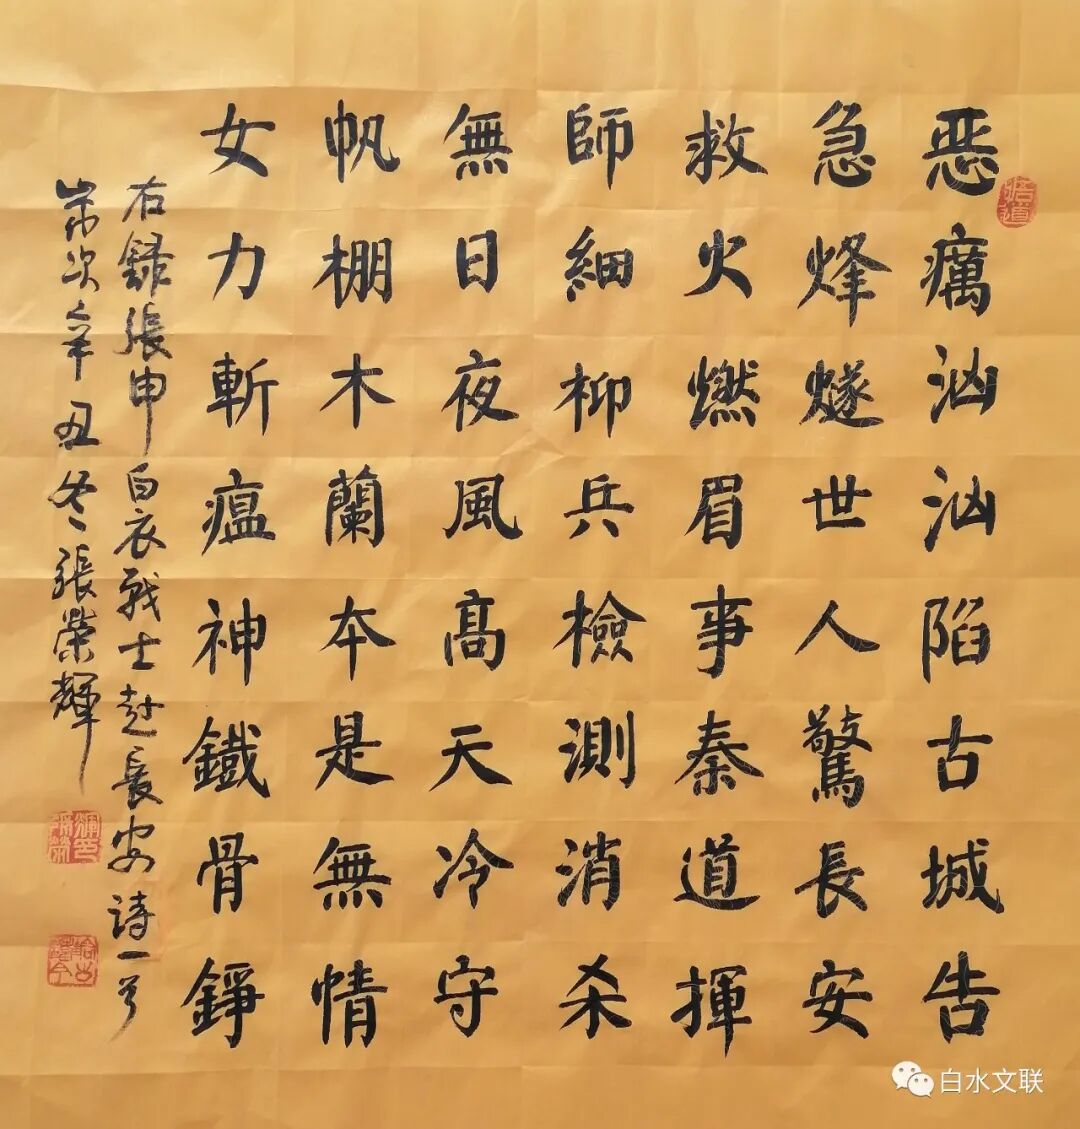 恶癘汹汹陷古城告
急烽燧世人驚長安
救火燃眉事秦道揮
師細柳兵檢測消杀
無日夜風高天冷守
帆棚木蘭本是無情
女力斬瘟神鐵骨錚
右録張申白衣戰士赴長安詩一首
崇次辛丑冬張榮輝
白水文联